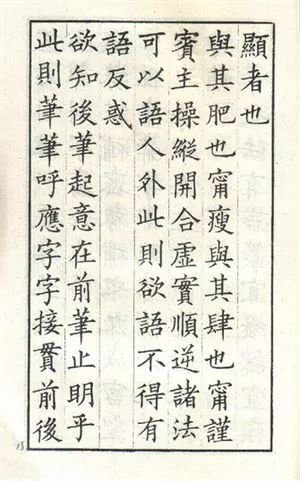 顯者也
與其肥也甯瘦與其肆也甯謹
賓主操縱開合虛實順逆諸法
可以語人外此則欲語不得有
語反惑
欲知後筆起意在前筆止明乎
此則筆筆呼應字字接貫前後
15